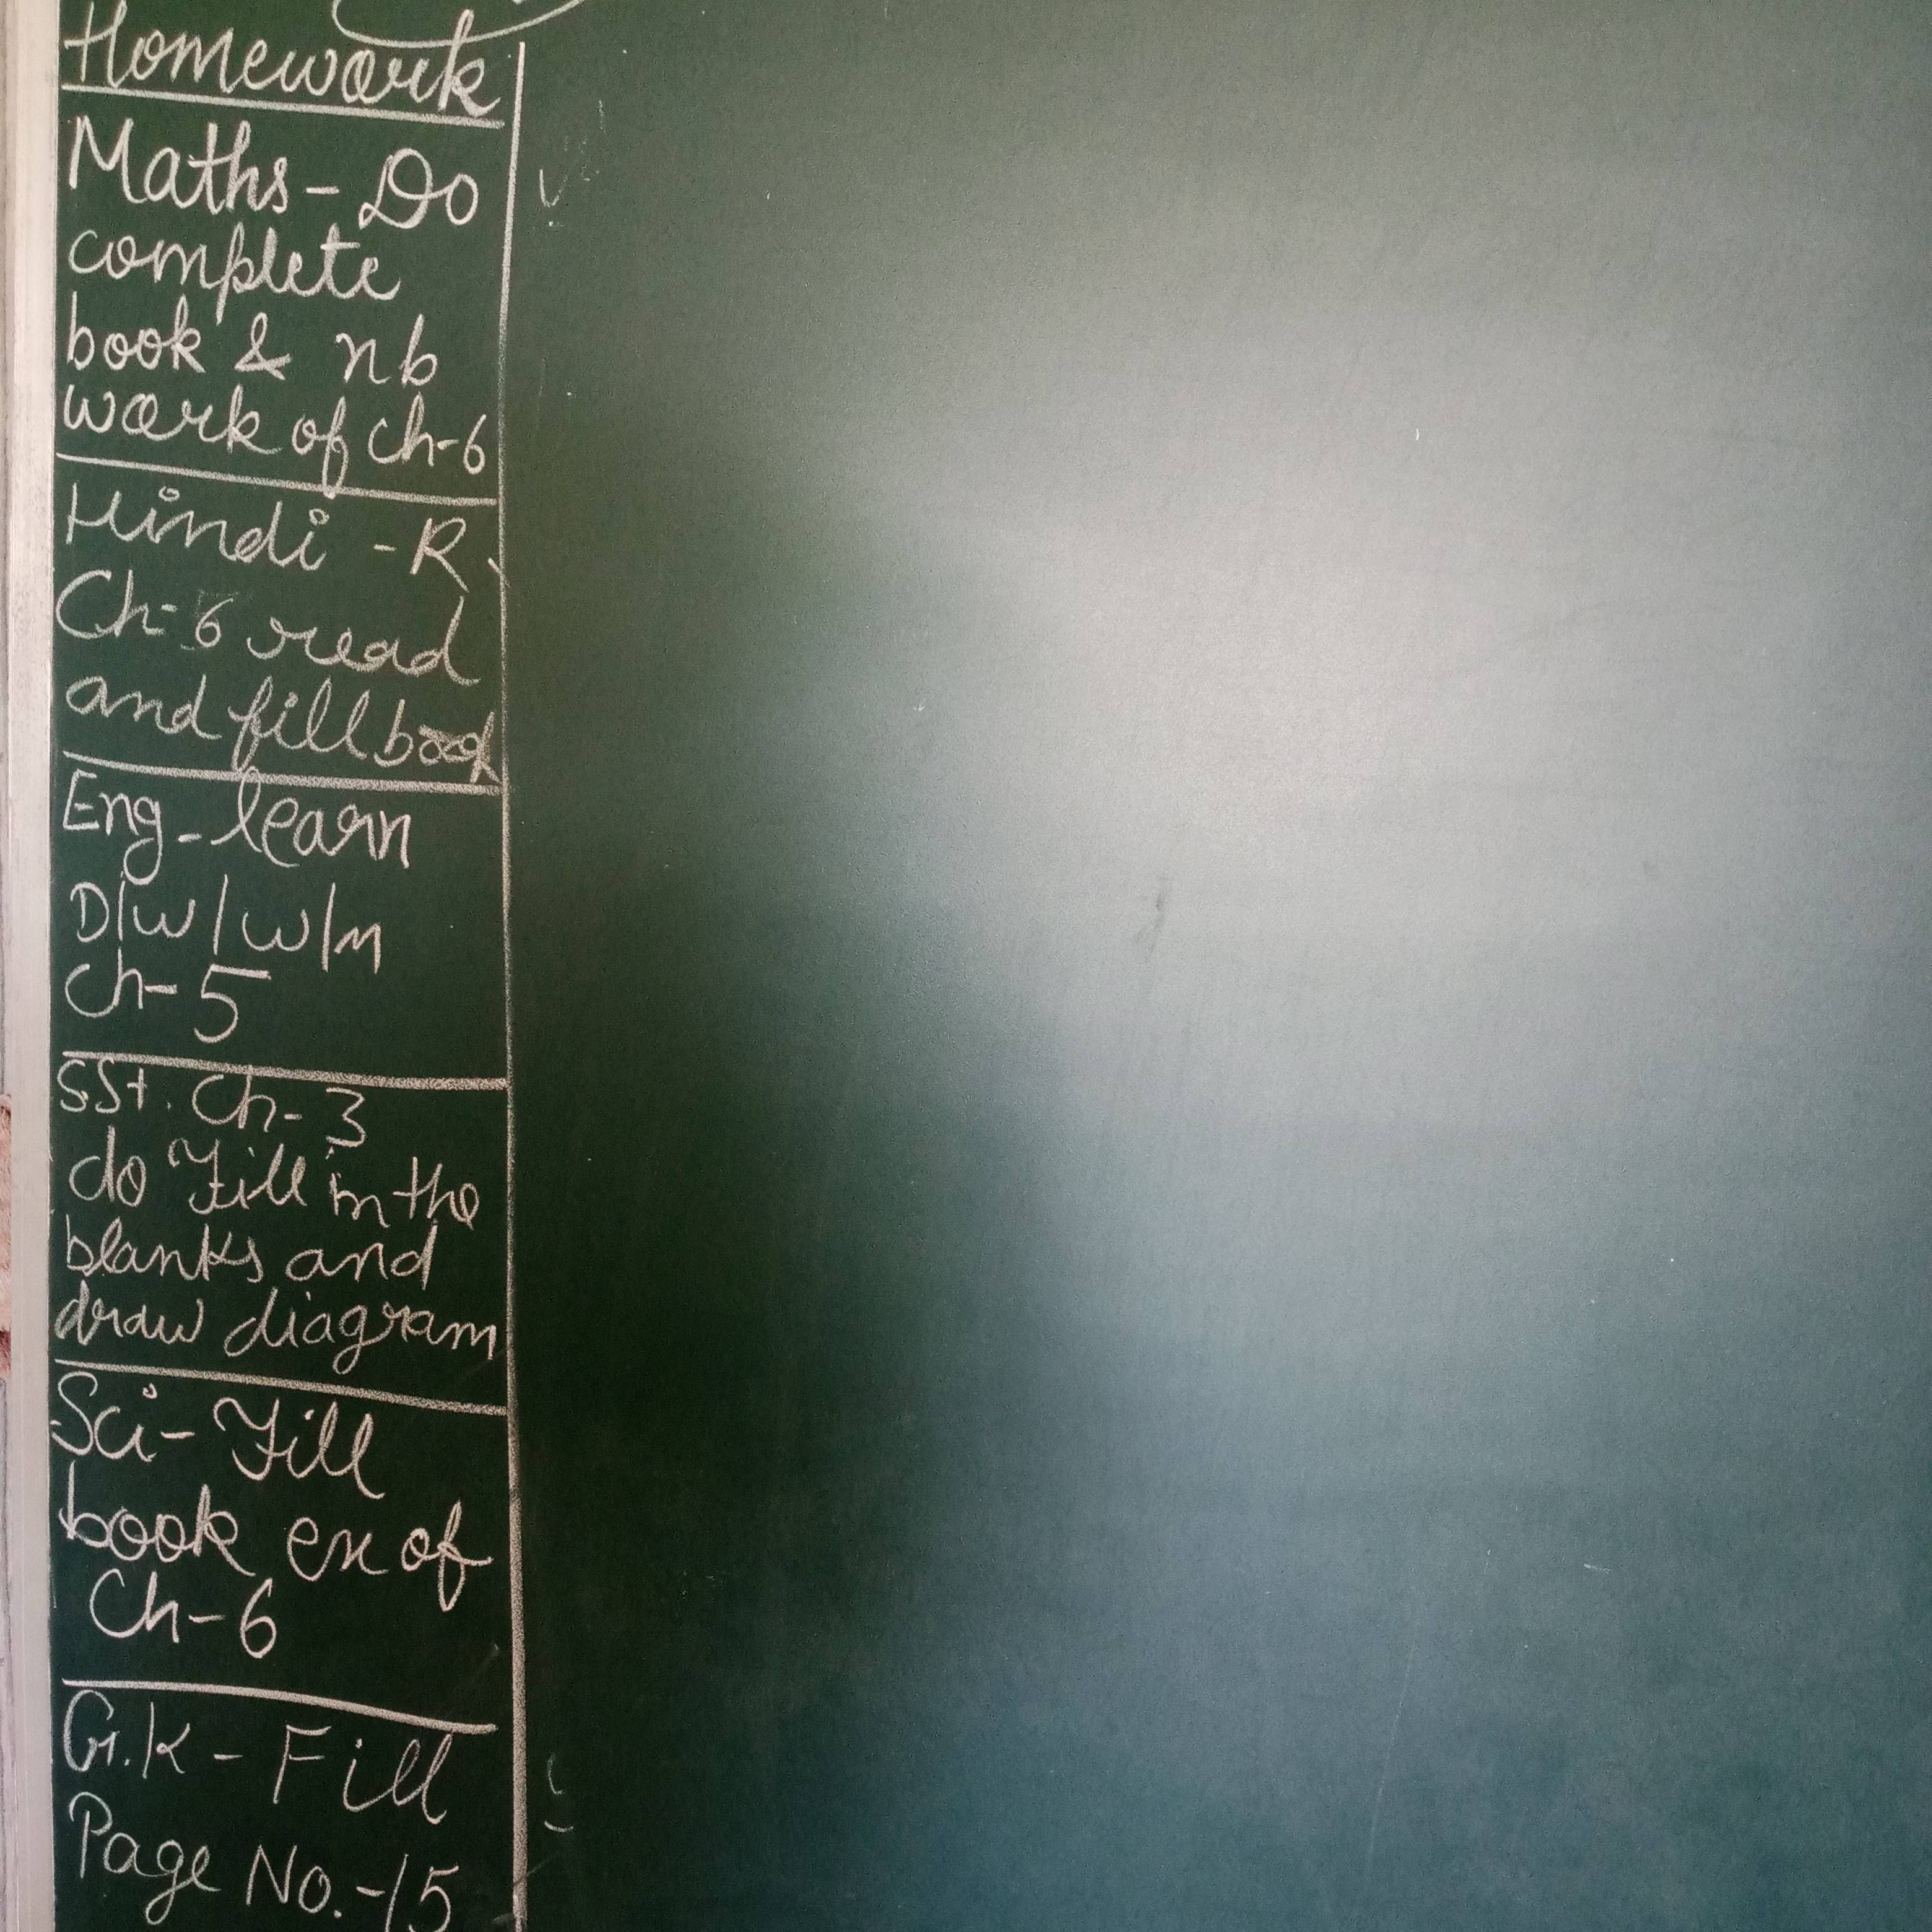 Homework
Maths - Do
complete
book & nb
work of ch-6
Hindi - R.
Ch-6 read
and fill book
Eng - learn
D/w / w/m
ch-5
SSt. Ch-3
do Fill in the
blanks and
draw diagram
Sci - Fill
book ex of
Ch-6
G.K - Fill
Page No. - 15